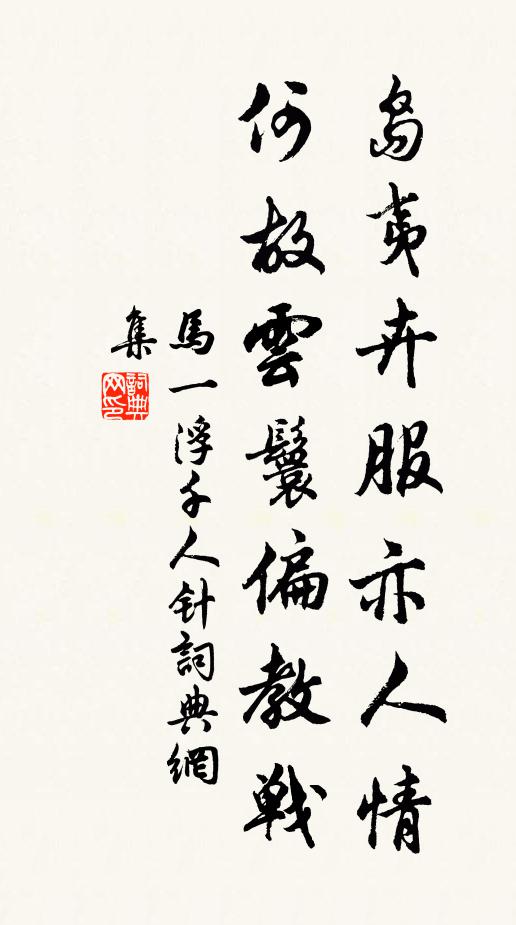 島夷卉服亦人情
何故雲鬟偏教戰
馬一浮千人针詞典網
集
詞典网印